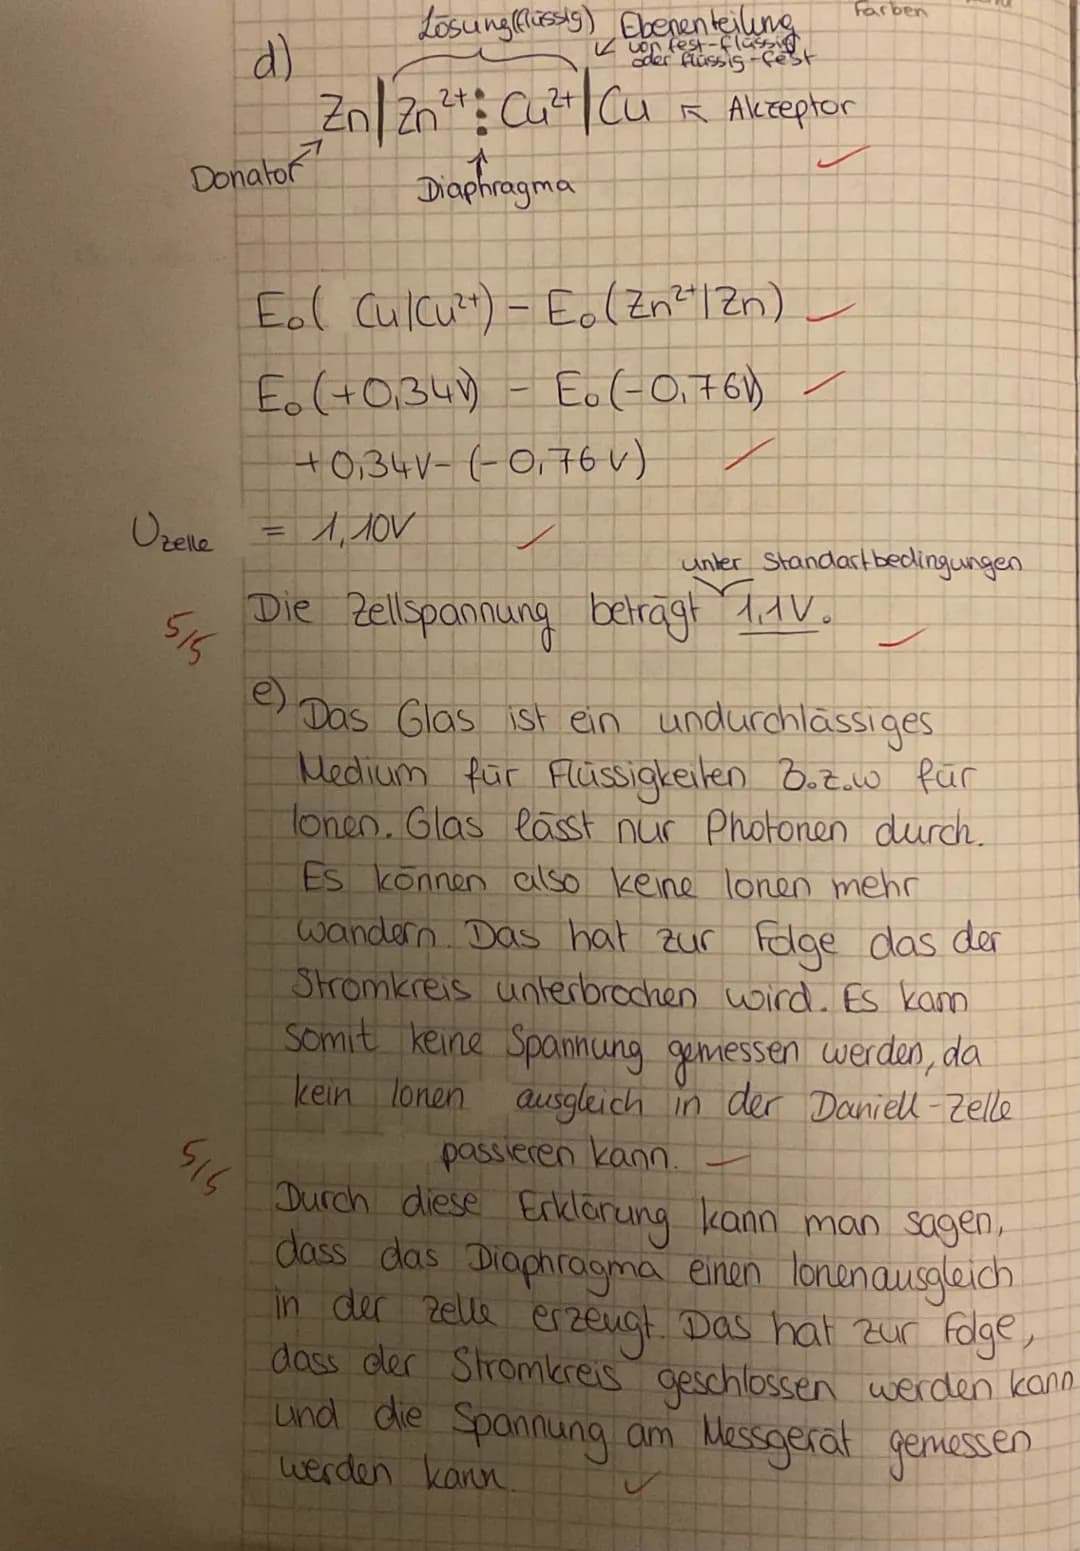 Farben
Lösung(flüssig) Ebenenteilung
von fest-flüssig
oder flüssig-fest
d)
Zn|Zn²⁺⋮Cu²⁺|Cu ↖ Akzeptor
Donator
Diaphragma
E₀( Cu/Cu²⁺) - E₀(Zn²⁺/Zn)
E₀(+0,34V) - E₀(-0,76V)
+0,34V-(-0,76V)
Uzelle = 1,10V
unter Standartbedingungen
Die Zellspannung beträgt 1,1V.
5/5
e) Das Glas ist ein undurchlässiges
Medium für Flüssigkeiten B.z.w für
Ionen. Glas lässt nur Photonen durch.
Es können also keine Ionen mehr
wandern. Das hat zur Folge das der
Stromkreis unterbrochen wird. Es kann
somit keine Spannung gemessen werden, da
kein Ionen ausgleich in der Daniell-Zelle
passieren kann.
5/5
Durch diese Erklärung kann man sagen,
dass das Diaphragma einen Ionenausgleich
in der Zelle erzeugt. Das hat zur Folge,
dass der Stromkreis geschlossen werden kann
und die Spannung am Messgerät gemessen
werden kann.